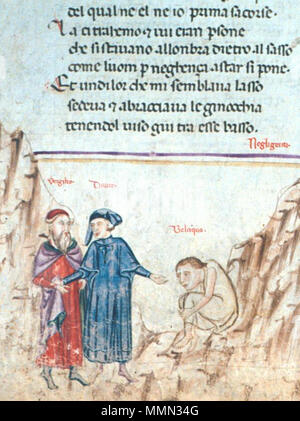 del qual ne el ne io prima sacorse.
La ci trahemo ⁊ ivi eran psone
che si stavano allonbra dietro al sasso
come luom p neghença astar si pone.
Et un di lor che mi semblava lasso
sedeva ⁊ abracciava le ginocchia
tenendo l viso giu tra esse basso
Negligentia
Virgilio
Dante
Belaqua
alamy
MMN34G
www.alamy.com